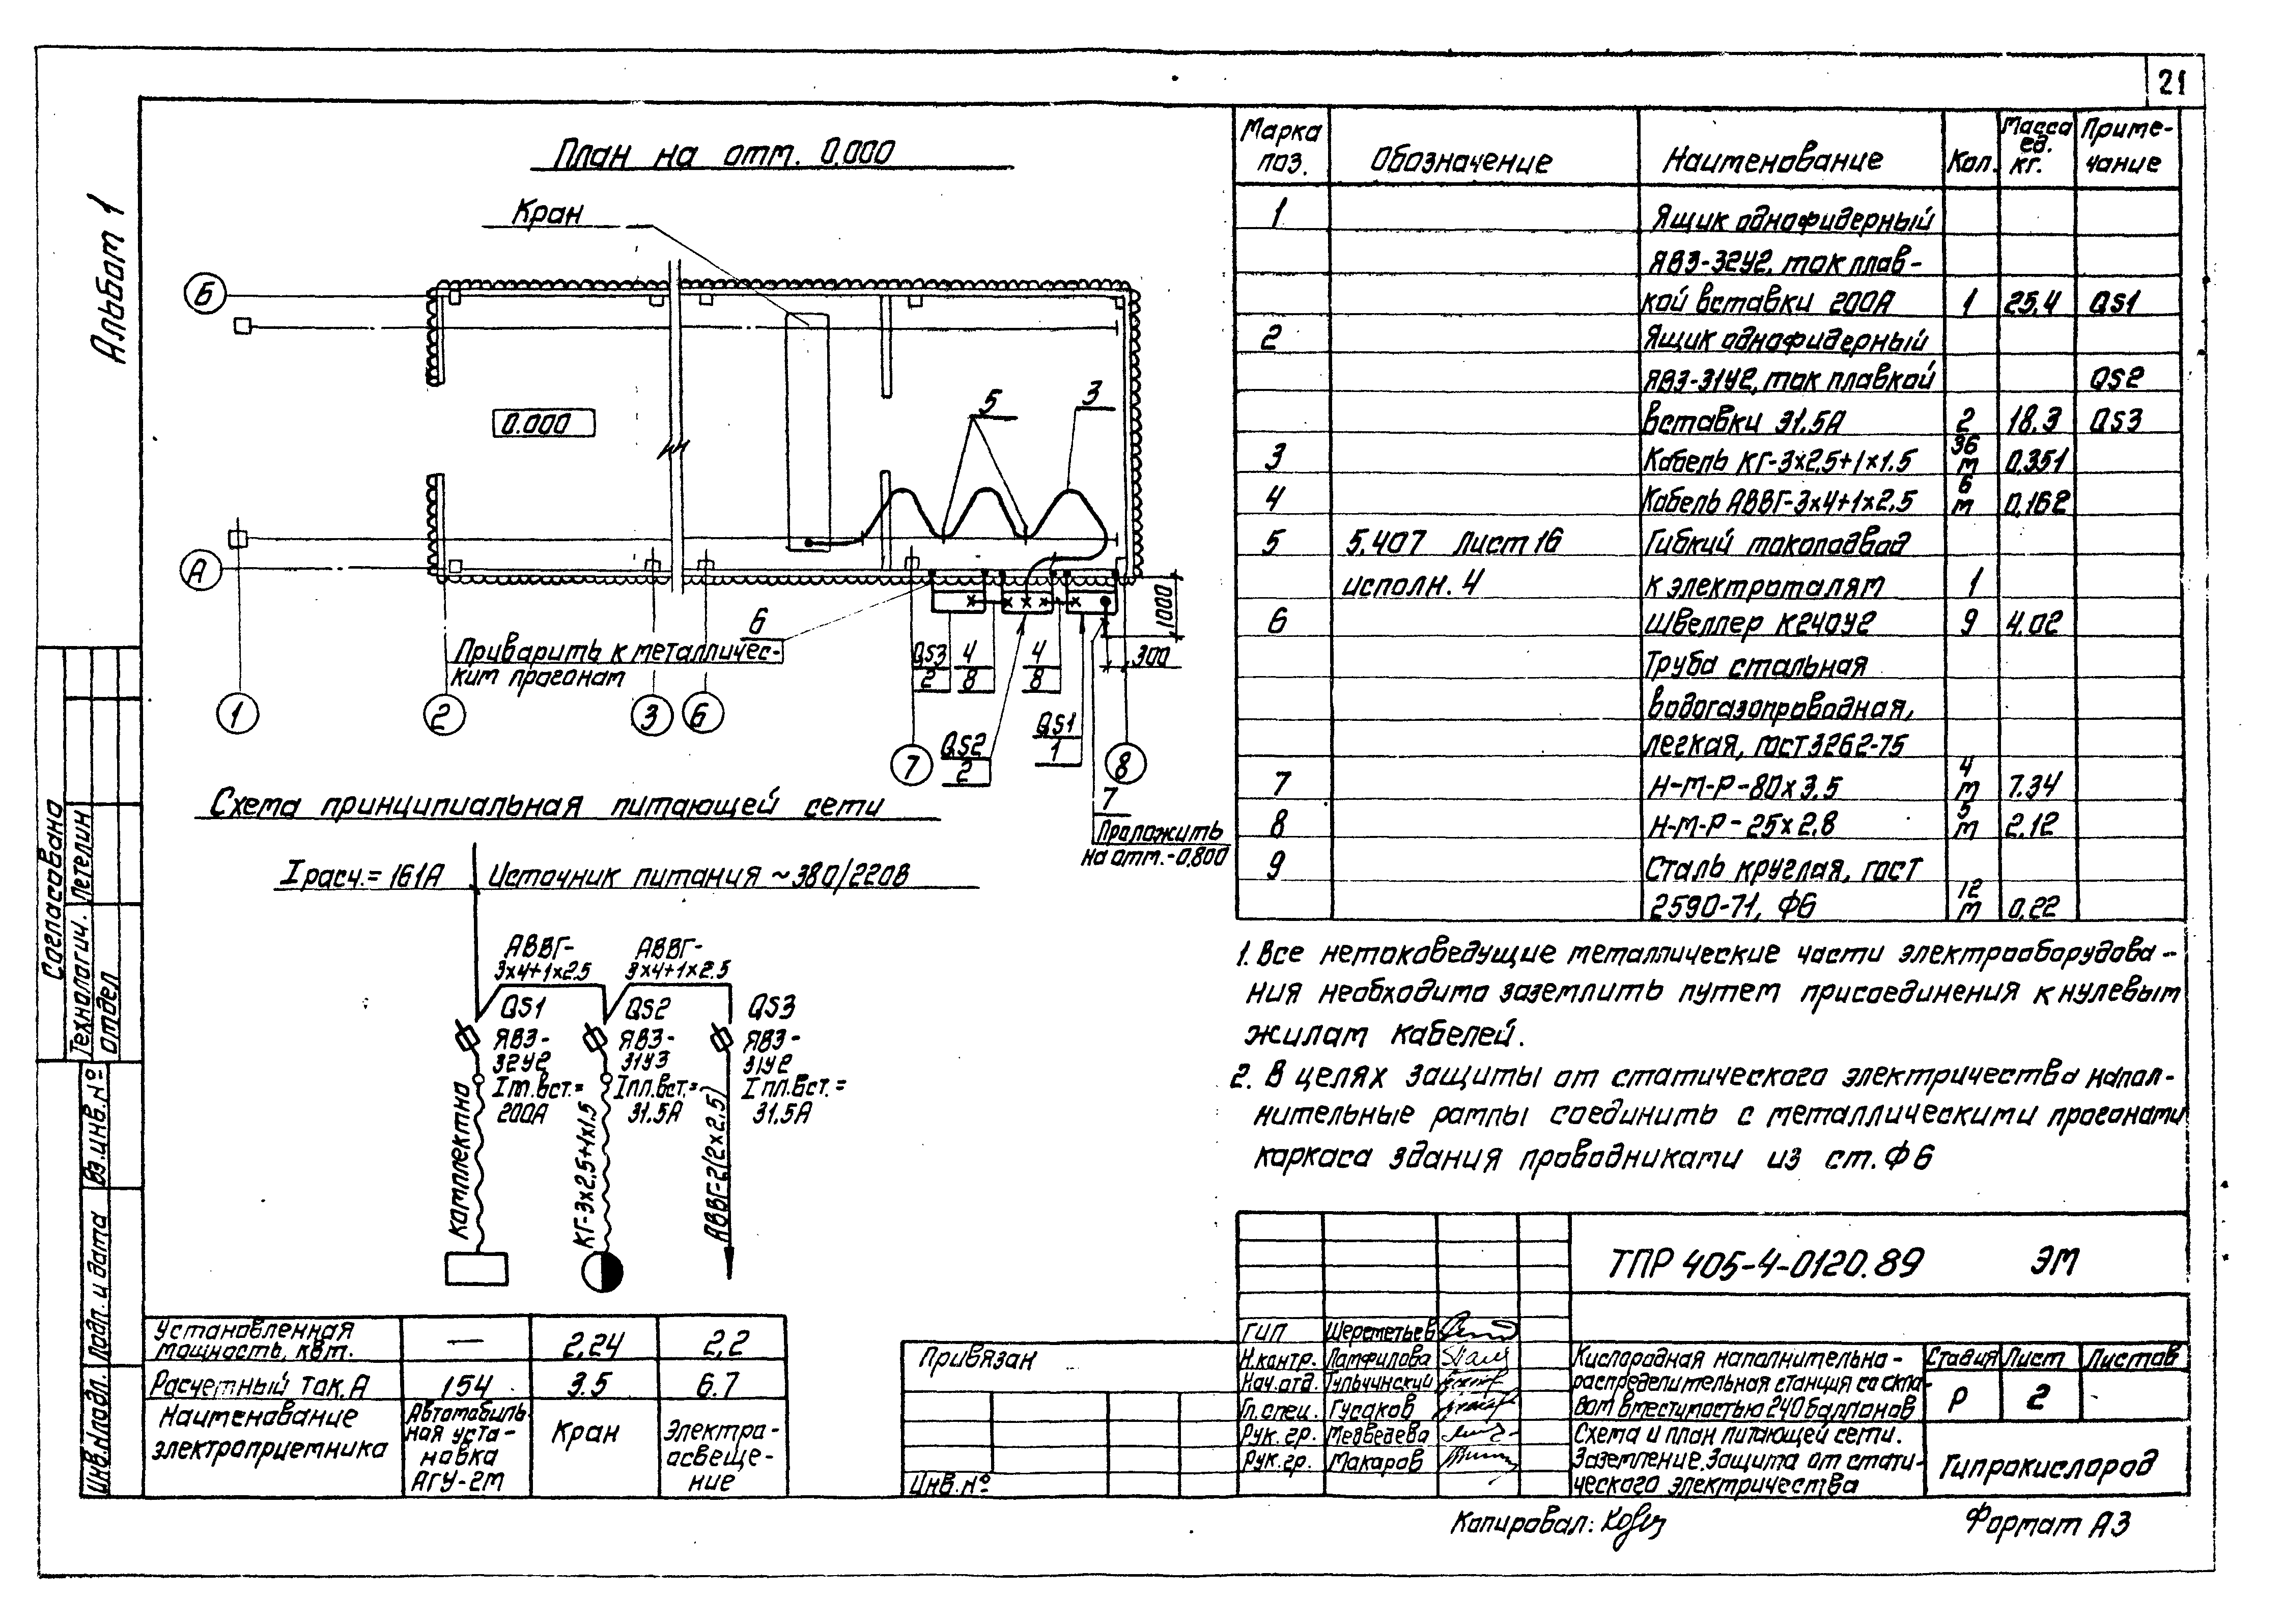 21
Альбом 1
План на отм. 0.000
Кран
Б
0.000
5
3
А
6
Приварить к металличес-
ким прогонам
QS3
2
4
8
4
8
1000
300
1
2
3
6
7
8
QS2
2
QS1
1
7
Проложить
на отм. -0,800
Схема принципиальная питающей сети
Iрасч.= 161А
Источник питания ~380/220В
АВВГ-
3х4+1х2.5
АВВГ-
3х4+1х2.5
QS1
ЯВЗ-
32У2
Iт.вст.=
200А
QS2
ЯВЗ-
31У3
Iпл.вст.=
31.5А
QS3
ЯВЗ-
31У2
Iпл.вст.=
31.5А
комплектно
КГ-3х2.5+1х1.5
АВВГ-2(2х2.5)
Установленная
мощность, квт.
—
2,24
2,2
Расчетный ток, А
154
3.5
6.7
Наименование
электроприемника
Автомобиль-
ная уста-
новка
АГУ-2М
Кран
Электро-
освеще-
ние
Марка
поз.
Обозначение
Наименование
Кол.
Масса
ед.
кг.
Приме-
чание
1
Ящик однофидерный
ЯВЗ-32У2, ток плав-
кой вставки 200А 1 25,4 QS1
2
Ящик однофидерный
ЯВЗ-31У2, ток плавкой QS2
вставки 31,5А 2 18,3 QS3
3 Кабель КГ-3х2.5+1х1.5 36 м 0,351
4 Кабель АВВГ-3х4+1х2,5 6 м 0,162
5 5.407 Лист 16 Гибкий токоподвод
исполн. 4 к электроталям 1
6 Швеллер К240У2 9 4.02
Труба стальная
водогазопроводная,
легкая, гост 3262-75
7 Н-М-Р-80х3.5 4 м 7.34
8 Н-М-Р-25х2.8 5 м 2.12
9 Сталь круглая, гост
2590-71, Ф6 12 м 0,22
1. Все нетоковедущие металлические части электрооборудова-
ния необходимо заземлить путем присоединения к нулевым
жилам кабелей.
2. В целях защиты от статического электричества напол-
нительные рампы соединить с металлическими прогонами
каркаса здания проводниками из ст. Ф6
ТПР 405-4-0120.89 ЭМ
ГИП Шереметьев
Н.контр. Памфилова
Нач.отд. Тульчинский
Гл.спец. Гусаков
Рук. гр. Медведева
Рук. гр. Макаров
Кислородная наполнительно-
распределительная станция со скла-
дом вместимостью 240 баллонов
Схема и план питающей сети.
Заземление. Защита от стати-
ческого электричества
Стадия Лист Листов
Р 2
Гипрокислород
Привязан
Инв. №
Копировал:
Формат А3
Согласовано
Технологич.
отдел
Летелин
Вз.инв.№
Подп. и дата
Инв.№ подл.